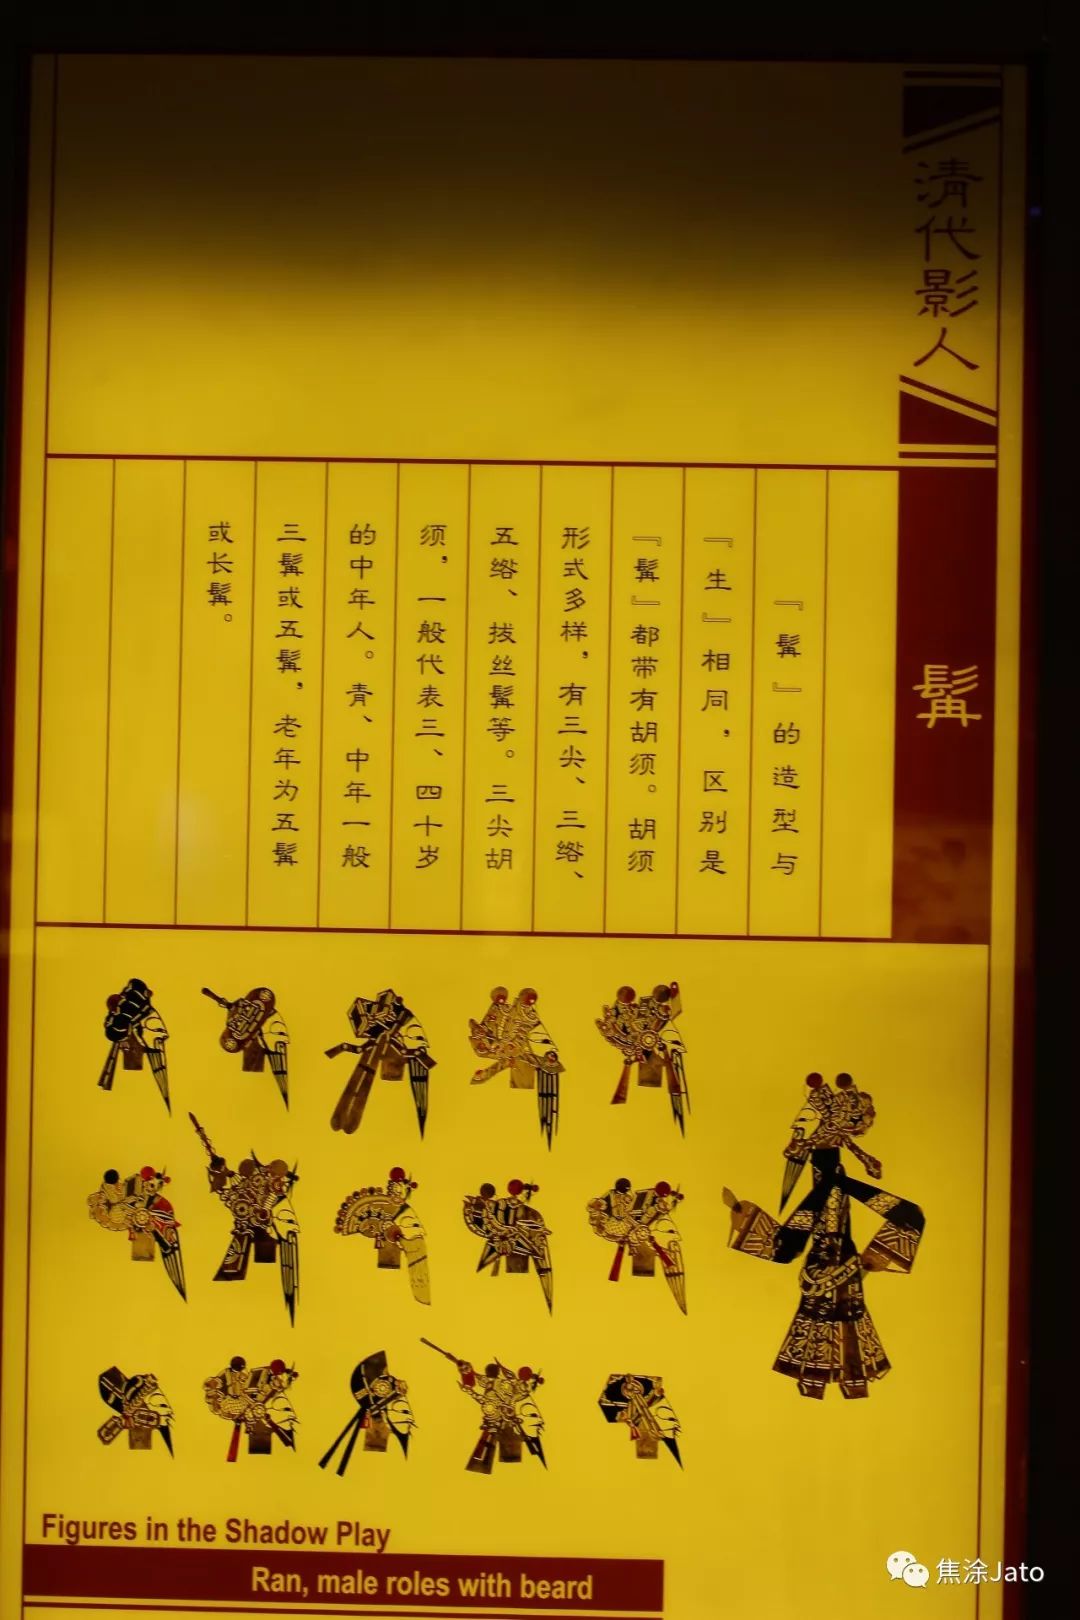 清代影人
髯
『髯』的造型与
『生』相同，区别是
『髯』都带有胡须。胡须
形式多样，有三尖、三绺、
五绺、拔丝髯等。三尖胡
须，一般代表三、四十岁
的中年人。青、中年一般
三髯或五髯，老年为五髯
或长髯。
Figures in the Shadow Play
Ran, male roles with beard
焦涂Jato